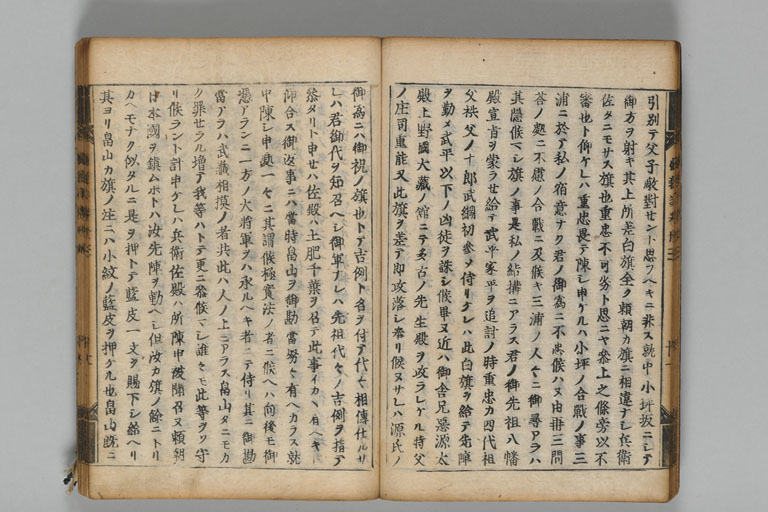 引別テ父子敵對セント思フヘキニ非ス就中小坪坂ニシテ
御方ヲ射キ其上所差白旗全ク頼朝カ旗ニ相違ナシ兵衛
佐タニモサス旗也重忠不可劣ト思ニヤ参上之條旁以不
審也ト仰ケレハ重忠畏テ陳シ申ケルハ小坪ノ合戰ノ事三
浦ニ於テ私ノ宿意ナク君ノ御為ニ不忠候ハヌ由再三問
答ノ處ニ不慮ノ合戰ニ及候キ三浦ノ人々ニ御尋アラハ
其隠候マシ旗ノ事是私ノ結構ニアラス君ノ御先祖八幡
殿宣旨ヲ蒙ラセ給テ武平家平ヲ追討ノ時重忠カ四代祖
父秩父ノ十郎武綱初参メ侍リケレハ此白旗ヲ給テ先陣
ヲ勤メ武平以下ノ凶徒ヲ誅シ候畢又近ハ御舎兄惡源太
殿上野國大藏ノ館ニテ多古ノ先生殿ヲ攻ラレケル時父
ノ庄司重能又此旗ヲ差テ即攻落シ奉リ候ヌサレハ源氏ノ
御為ニハ御祝ノ旗也トテ吉例ト名ヲ付テ代々相傳仕ルサ
レハ君御代ヲ知召ヘシ御軍ナレハ先祖代々ノ吉例ヲ指テ
参タリト申セハ佐殿ハ土肥千葉ヲ召テ此事イカヽ有ヘキ
仰合ス御返事ニハ當時畠山ヲ御勘當努々有ヘカラス就
中陳シ申處一々ニ其謂候極實法ノ者ニ候ヘハ向後モ御
憑アランニ一方ノ大將軍ヲハ承ルヘキ者ニテ侍リ其ニ御勘
當アラハ武藏相摸ノ者共此ハ人ノ上ニアラス畠山タニモカ
ク罪セラル増テ我等ハトテ更ニ参候マシ誰々モ此等ヲソ守
リ候ラント計申ケレハ兵衛佐殿ハ所陳申披聞召又頼朝
日本國ヲ鎮ンホトハ汝先陣ヲ勤ヘシ但汝カ旗ノ餘ニトリ
カヘモナク似タルニ是ヲ押トテ藍皮一文ヲ賜下シ給ヘリ
其ヨリ畠山カ旗ノ注ニハ小紋ノ藍皮ヲ押ケル也畠山既ニ